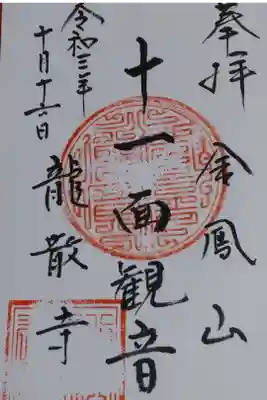 奉拝
金鳳山
十一面観音
龍散寺
令和三年
十月十六日